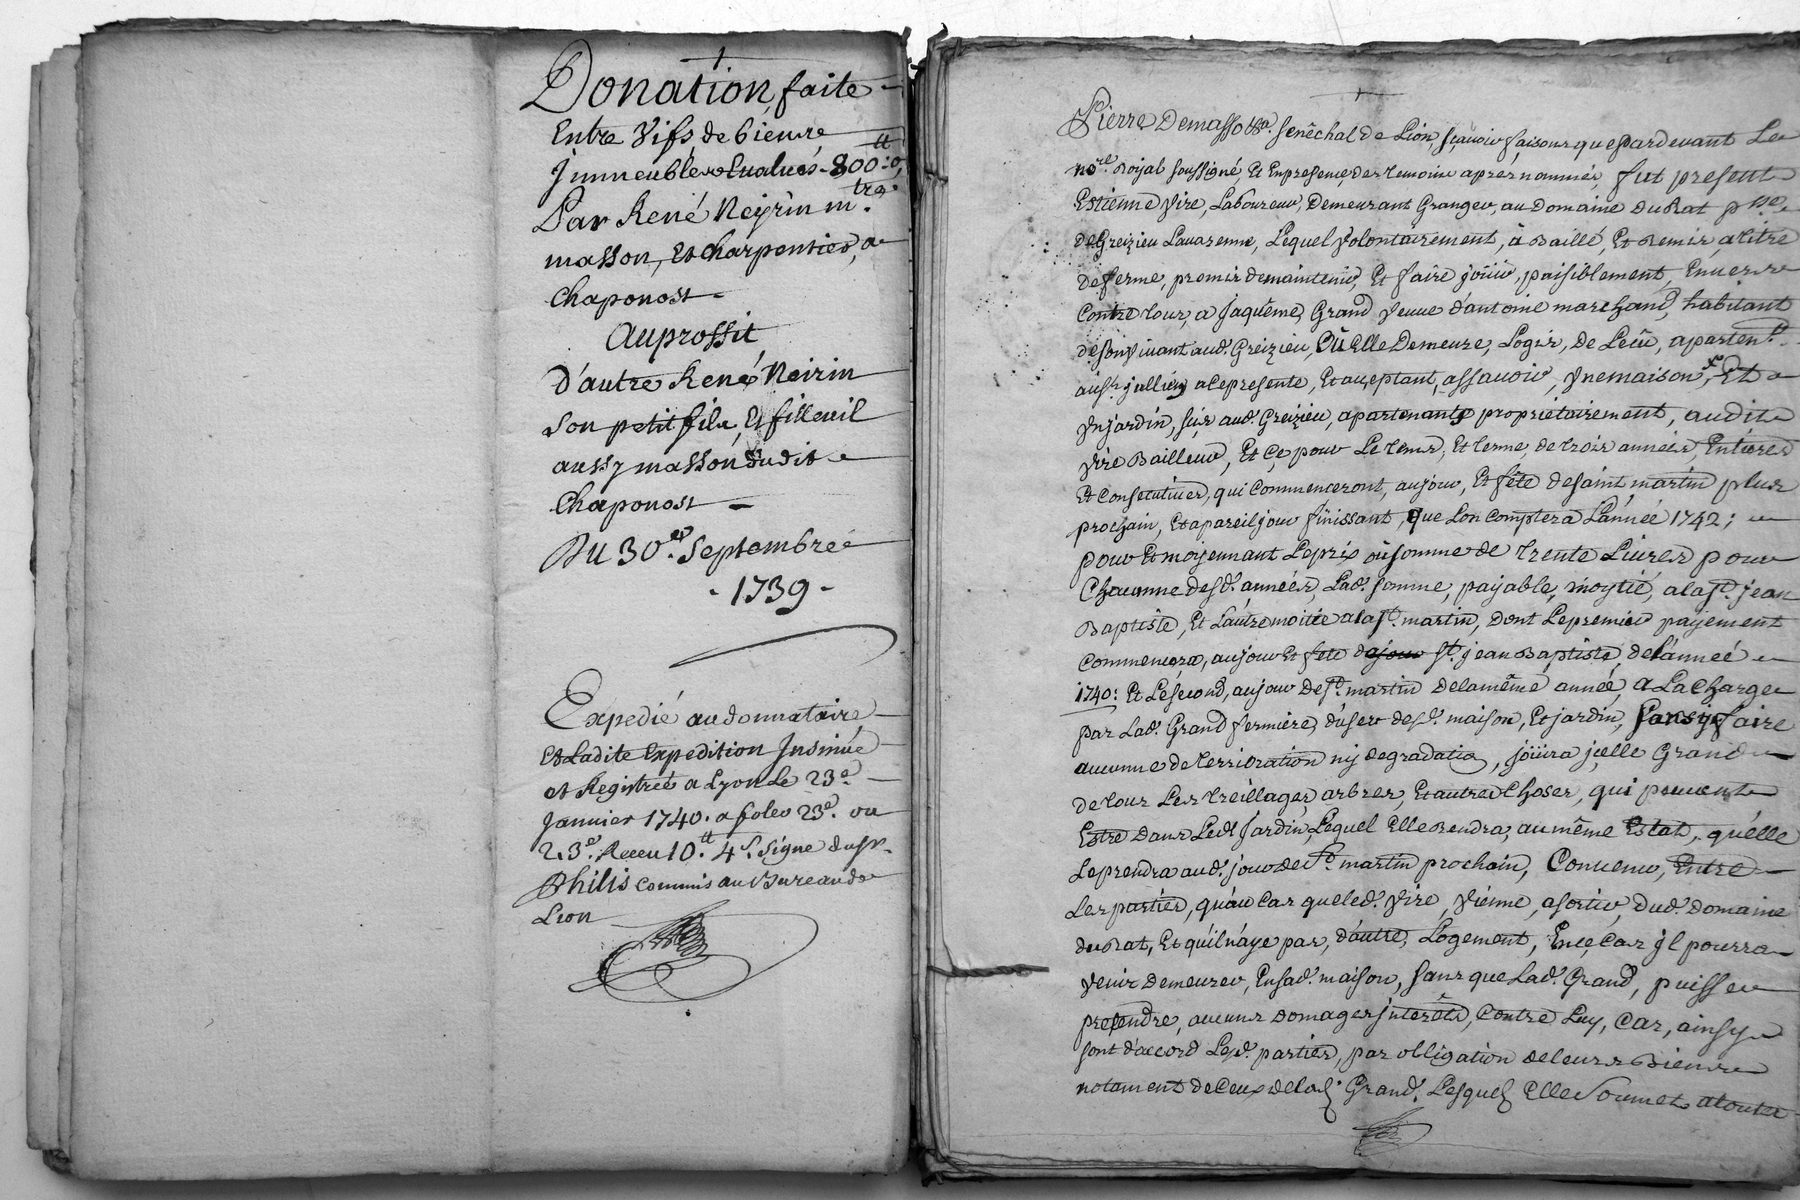 Donation faite
Entre Vifs de biens
Jmmeubles Evalués 800:tt
Par René Neyrin m.tre
masson, Et charpentier, a
chaponost
Auproffit
d'autre René Neirin
son petit fils, Et filleuil
aussy masson dudit
Chaponost
Du 30.e Septembre
1739
Expedié au donnataire
Et Ladite Expedition Jnsinuée
et Registrée a Lyon Le 23e
Janvier 1740. a foleo 23.o vo
23.e Receu 10.tt 4.s signe dusr.
Philis commis au Bureau de
Lion
Pierre Demasso &a. senêchal de Lion, sçavoir faisons que pardevant Le
no.re Roÿal soussigné Et En presence, des temoins apres nommés, fut present
Estienne Vire, Laboureur, Demeurant Granger, au Domaine Du Rat p.sse
de Greizieu Lavarenne, Lequel Volontairement, à Baillé, Et Remis a titre
de ferme, promis de maintenir, Et faire joüir, paisiblement, Envers
Contre tous, a Jaquême, Grand Veuve d'antoine marchand, habitant
de son Vivant aud. Greizieu, Où Elle Demeure, Logis, De Lecû, aparten.t
au sr. jullien a Ce presente, Et acceptant, assavoir, Vne maison, Et
Vn jardin, sis aud. Greizieu, apartenants proprietairement, audit
Vire Bailleur, Et Ce pour Le tems, Et terme, de trois années, Entieres
Et Consecutives, qui Commenceront, au jour, Et fête de saint martin plus
prochain, Et a pareil jour finissant, que Lon Comptera L'année 1742;
pour Et moÿennant Le prix où somme de trente Livres pour
Chacunne desd. années, Lad. somme, paÿable, moÿtié, a la st. jean
Baptiste, Et L'autre moitiée a la st. martin, dont Le premier paÿement
Commencera, au jour Et fete de jour st. jean Baptiste, de L'année
1740: Et Le second, au jour de st. martin de la même année, a La Charge
par Lad. Grand fermiere, d'user desd. maison, Et jardin, sans ÿ faire
aucunne deterrioration nÿ degradation, joüira jcelle Grand
de tous Les treillages, arbres, Et autres Choses, qui peuvent
Estre dans Led. Jardin, Lequel Elle Rendra, au même Estat, qu'elle
Le prendra aud. jour de st. martin prochain, Convenu, Entre
Les parties, qu'au Cas que led. Vire, Vienne, a sortir, dud. Domaine
du Rat, Et qu'il n'aÿe pas, d'autre, Logement, En ce Cas jl pourra
Venir Demeurer, En sad. maison, sans que Lad. Grand, puisse
pretendre, aucuns domages jnterêts, Contre Luy, Car, ainsy
sont d'accord Lesd. parties, par obligation de leurs Biens
notament de Ceux de lad. Grand. Lesquels Elle Soumet a toutes